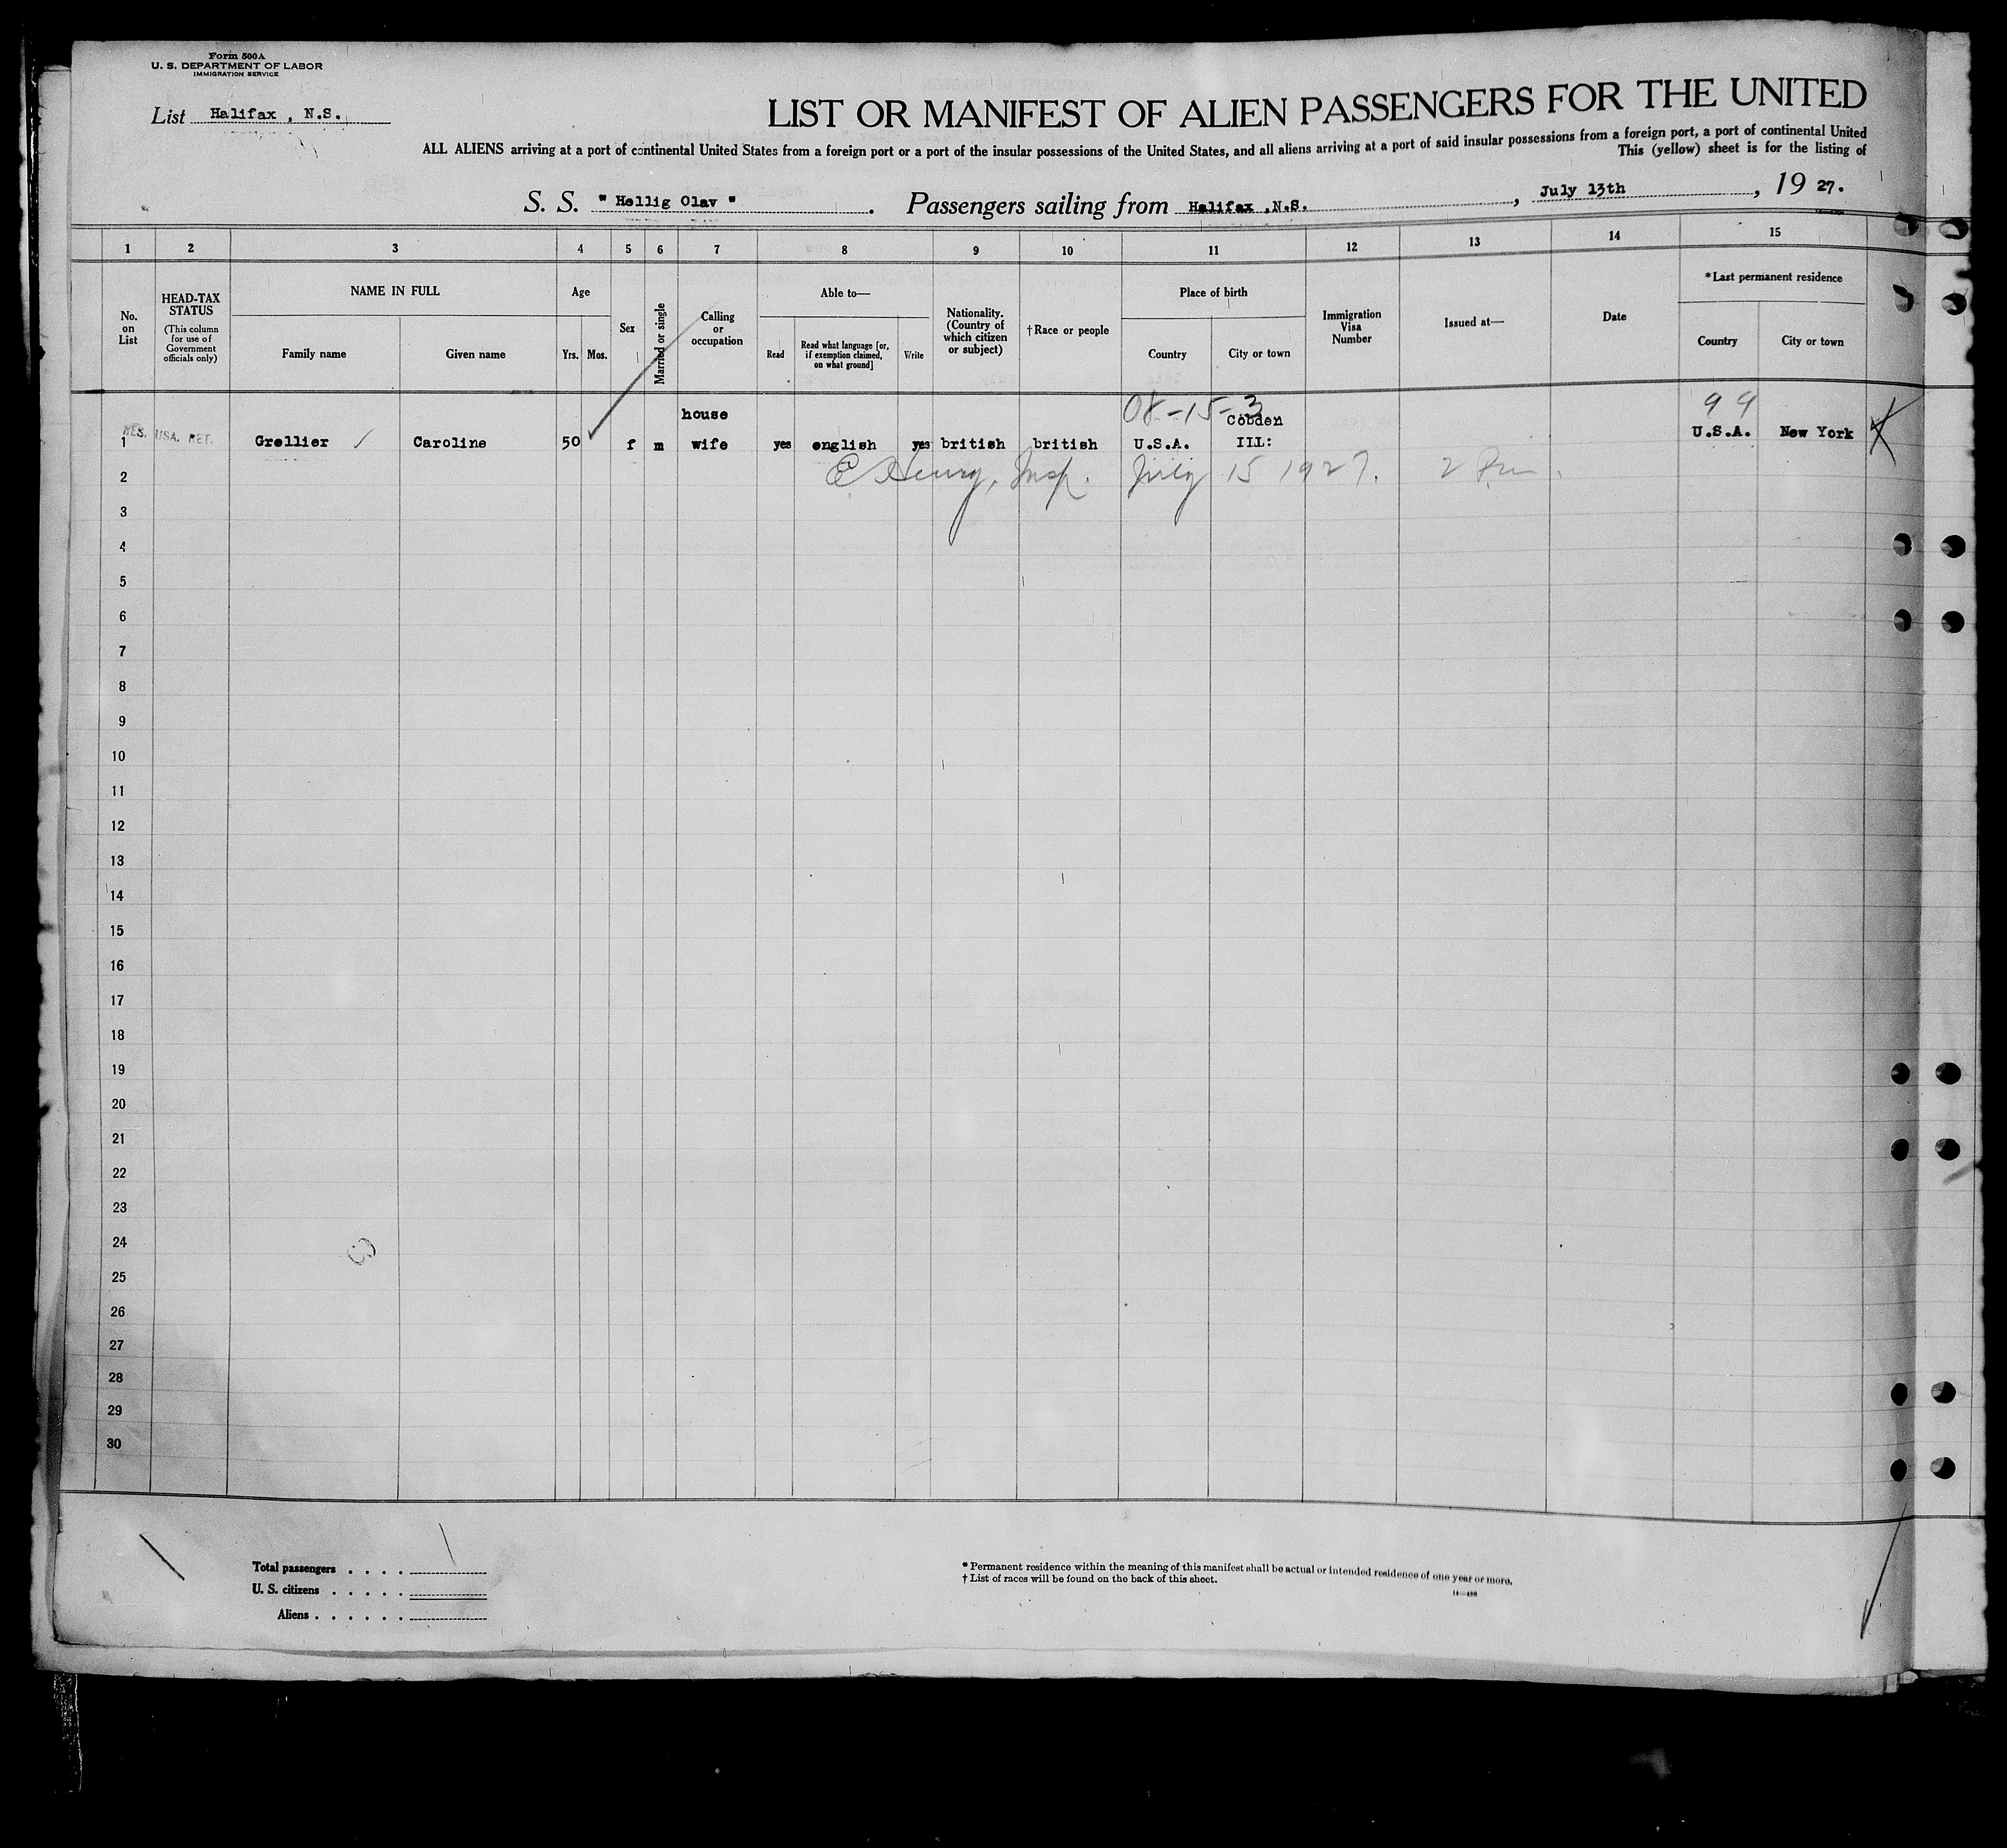 Form 500A
U. S. DEPARTMENT OF LABOR
IMMIGRATION SERVICE
List Halifax , N.S.
LIST OR MANIFEST OF ALIEN PASSENGERS FOR THE UNITED
ALL ALIENS arriving at a port of continental United States from a foreign port or a port of the insular possessions of the United States, and all aliens arriving at a port of said insular possessions from a foreign port, a port of continental United
This (yellow) sheet is for the listing of
S. S. " Hellig Olav " . Passengers sailing from Halifax ,N.S. , July 13th , 19 27.
1 2 3 4 5 6 7 8 9 10 11 12 13 14 15
No. on List
HEAD-TAX STATUS
(This column for use of Government officials only)
NAME IN FULL
Family name Given name
Age
Yrs. Mos.
Sex
Married or single
Calling or occupation
Able to—
Read
Read what language [or, if exemption claimed, on what ground]
Write
Nationality. (Country of which citizen or subject)
†Race or people
Place of birth
Country City or town
Immigration Visa Number
Issued at—
Date
*Last permanent residence
Country City or town
08-15-3 99
house Cobden
1 RES. USA. RET. Grellier Caroline 50 f m wife yes english yes british british U.S.A. ILL: U.S.A. New York
2 E Henry, Insp. July 15 1927. 2 Pm.
3
4
5
6
7
8
9
10
11
12
13
14
15
16
17
18
19
20
21
22
23
24
25
26
27
28
29
30
Total passengers . . . .
U. S. citizens . . . . .
Aliens . . . . . .
* Permanent residence within the meaning of this manifest shall be actual or intended residence of one year or more.
† List of races will be found on the back of this sheet.